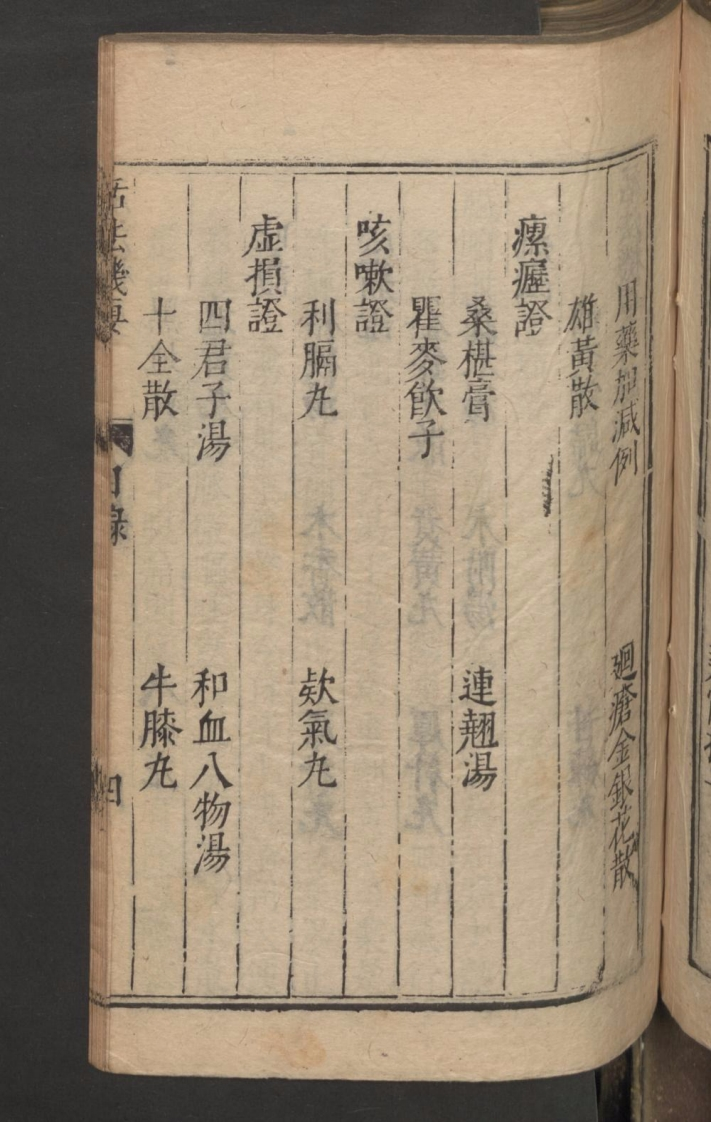 用藥加減例　廻瘡金銀花散
雄黃散
瘰癧證
桑椹膏　連翹湯
瞿麥飲子
咳嗽證
利膈丸　欬氣丸
虛損證
四君子湯　和血八物湯
十全散　牛膝丸
活法機要　目錄　四